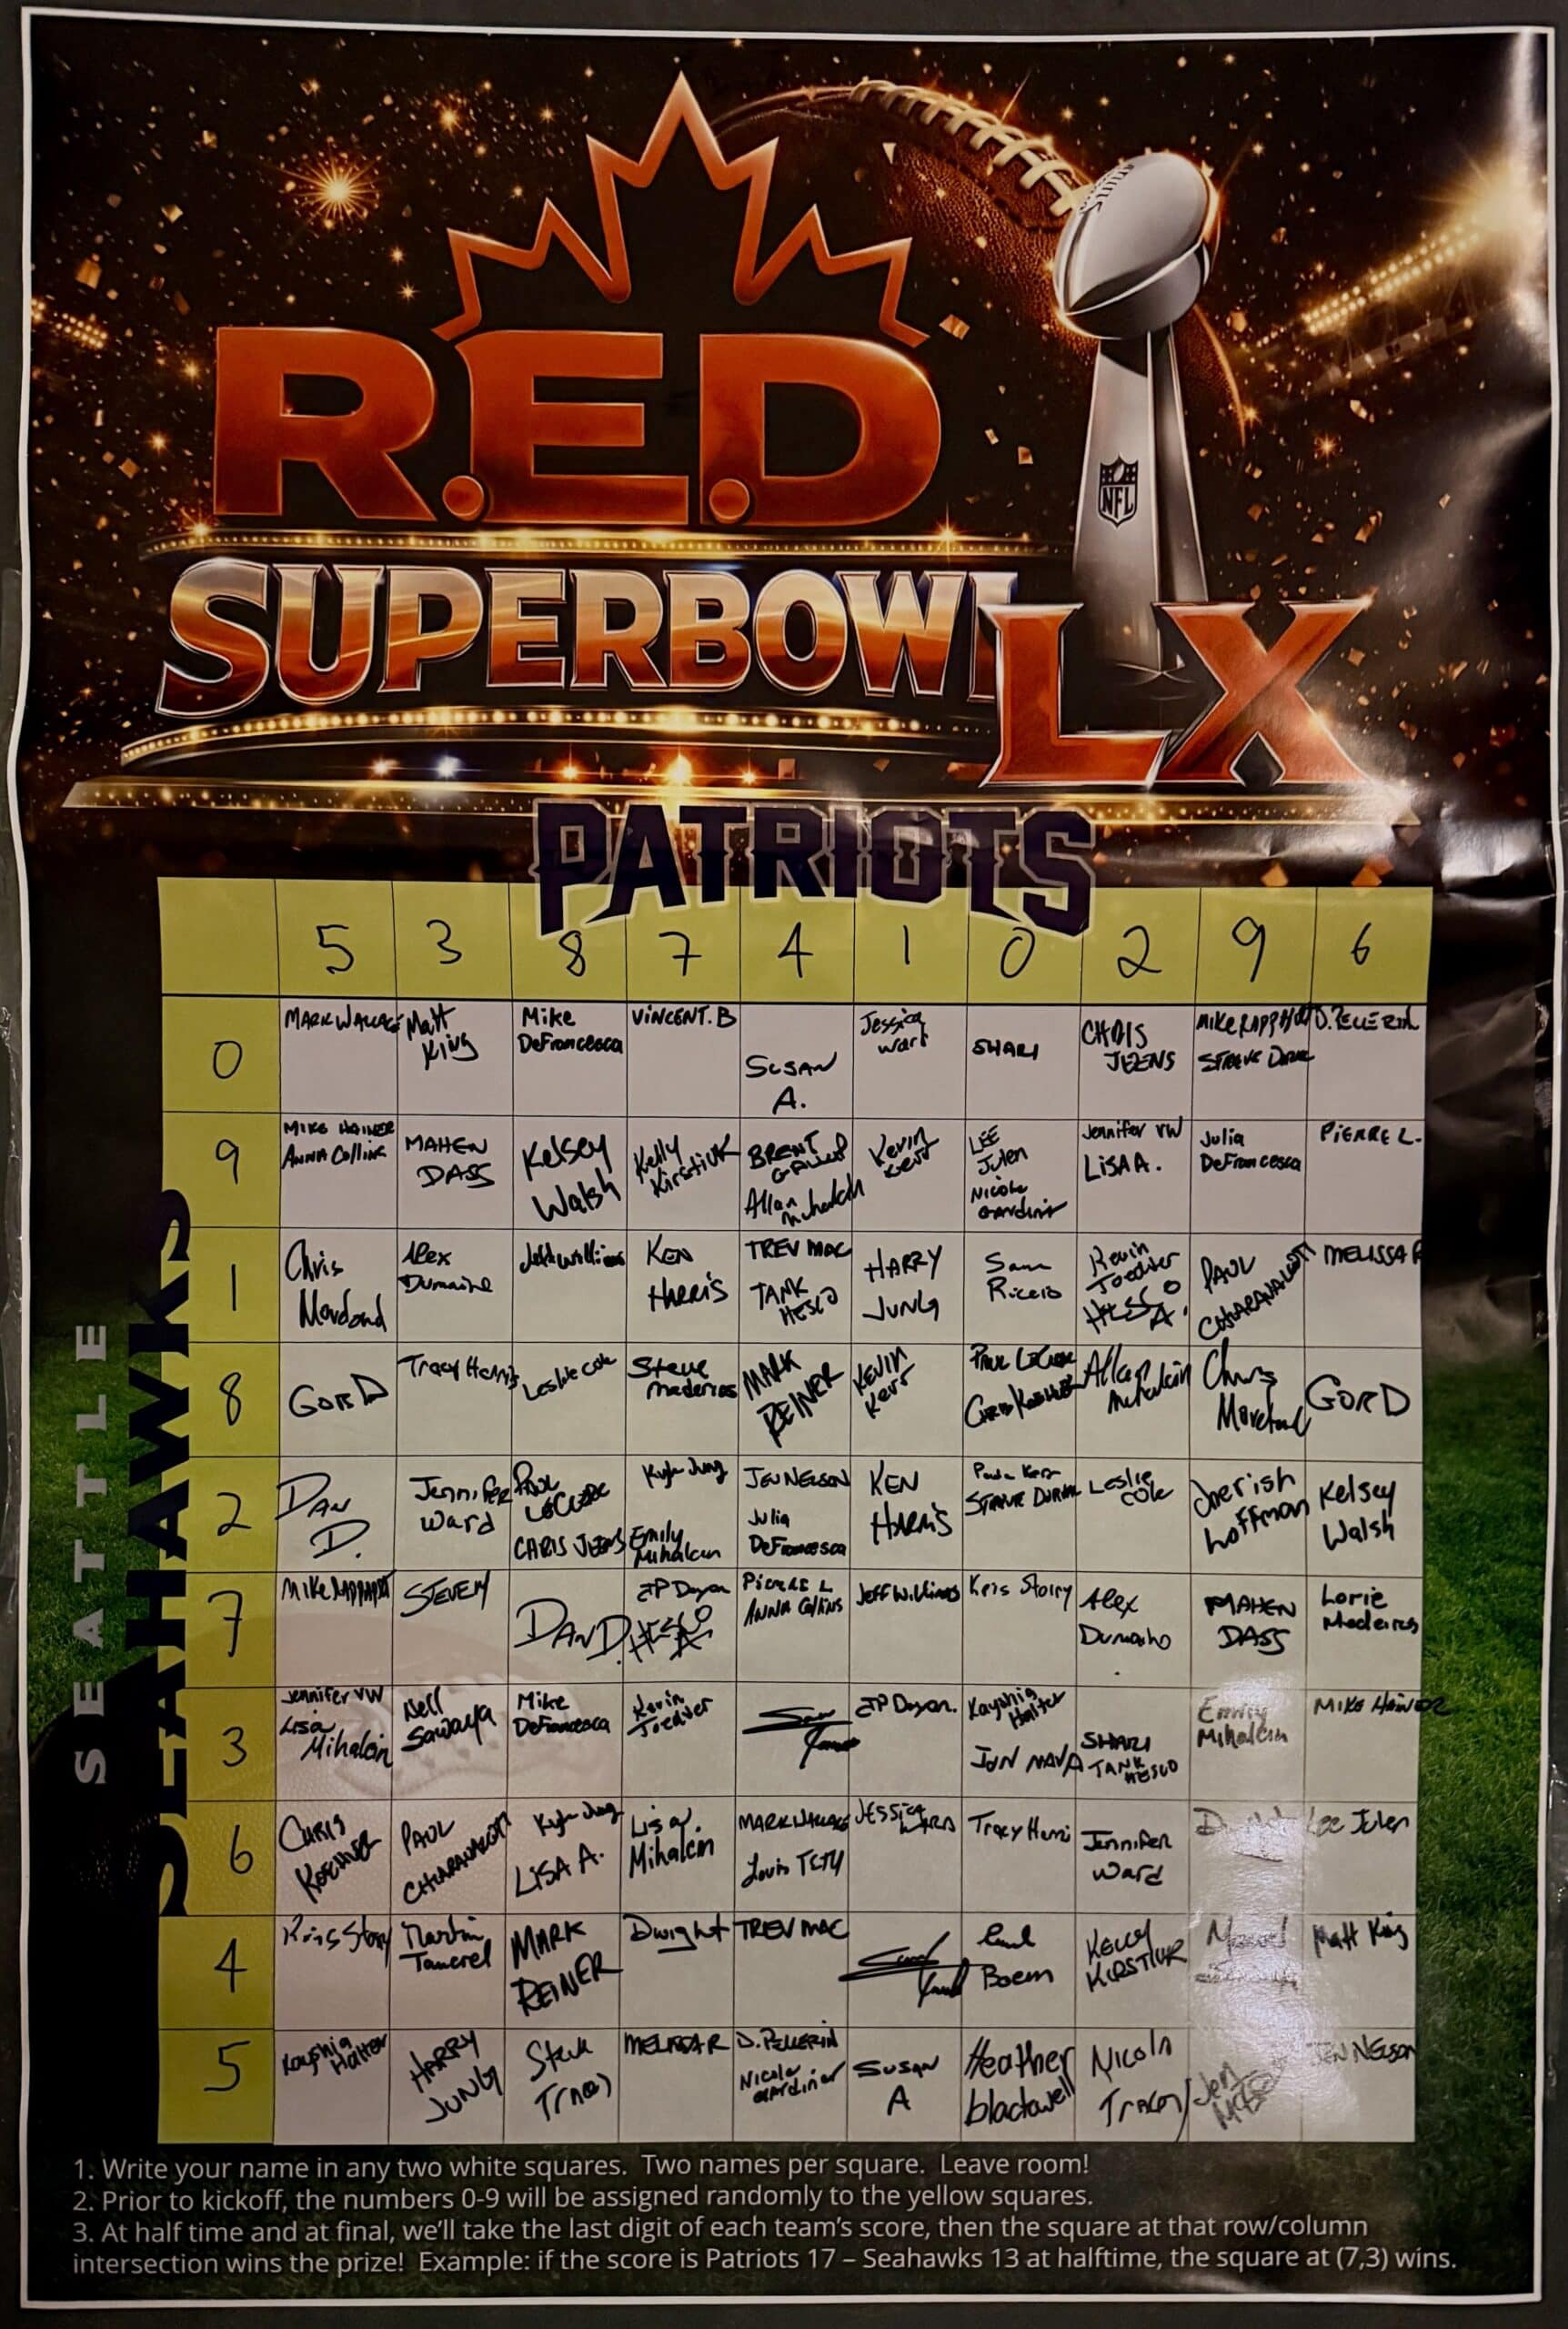 R.E.D
SUPERBOWL LX
NFL
PATRIOTS
SEATTLE
SEAHAWKS
5 3 8 7 4 1 0 2 9 6
0
MARK WALLACE
Matt
King
Mike
DeFrancesca
VINCENT.B
SUSAN
A.
Jessica
Ward
SHARI
CHRIS
JEZENS
MIKE RAPPAPORT
STEEVE
D.PELLERIN
9
MIKE HAINER
ANNA Collins
MAHEN
DASS
Kelsey
Walsh
Kelly
KirstiuK
BRENT
Allan
Mihalcin
Kevin
Kerr
LEE
Julen
Nicole
Gardiner
Jennifer VW
LiSA A.
Julia
DeFrancesca
PiERRE L.
1
Chris
Moreland
Alex
Dumaine
Jeff Williams
KEN
HARRIS
TREV MAC
TANK
HESCO
HARRY
JUNG
Sam
Riccio
Kevin
Toediter
HESSO
A.
PAUL
MELISSA R
8
GORD
Tracy Harris
Leslie Cole
Steve
Medeiros
MARK
REINER
KEVIN
Kerr
PAUL LECLERC
CHRIS KOECHNER
Allan
Mihalcin
Chris
Moreland
GORD
2
DAN
D.
Jennifer
Ward
PAUL
LECLERC
CHRIS JEZENS
Kyle Jung
Emily
Mihalcin
JEN NELSON
Julia
DeFrancesca
KEN
HARRIS
Leslie
Cole
Cherish
Loffman
Kelsey
Walsh
7
MIKE RAPPAPORT
STEVEN
DAN D.
JP Doyon
PIERRE L
ANNA Collins
JEFF Williams
Kris Storry
Alex
MAHEN
DASS
Lorie
Medeiros
3
Jennifer VW
Lisa
Mihalcin
Nell
Sawaya
Mike
DeFrancesca
Kevin
Toediter
JP Doyon.
Kayshia
Halter
JON NAVA
SHARI
TANK
HESCO
Emily
Mihalcin
MIKE HAINER
6
CHRIS
KOECHNER
PAUL
Kyle Jung
LiSA A.
Lisa
Mihalcin
MARK WALLACE
Louis
JESSICA
WARD
Tracy Harris
Jennifer
Ward
Lee Julen
4
Kris Storry
Martin
Tancrel
MARK
REINER
Dwight
TREV MAC
Boem
KELLY
KIRSTIUK
Matt King
5
Kayshia
Halter
HARRY
JUNG
Steve
Tracey
MELISSA R
D. PELLERIN
Nicole
Gardiner
SUSAN
A
Heather
blackwell
Nicola
Tracey
Jen
JEN NELSON
1. Write your name in any two white squares.  Two names per square.  Leave room!
2. Prior to kickoff, the numbers 0-9 will be assigned randomly to the yellow squares.
3. At half time and at final, we'll take the last digit of each team's score, then the square at that row/column
intersection wins the prize!  Example: if the score is Patriots 17 – Seahawks 13 at halftime, the square at (7,3) wins.